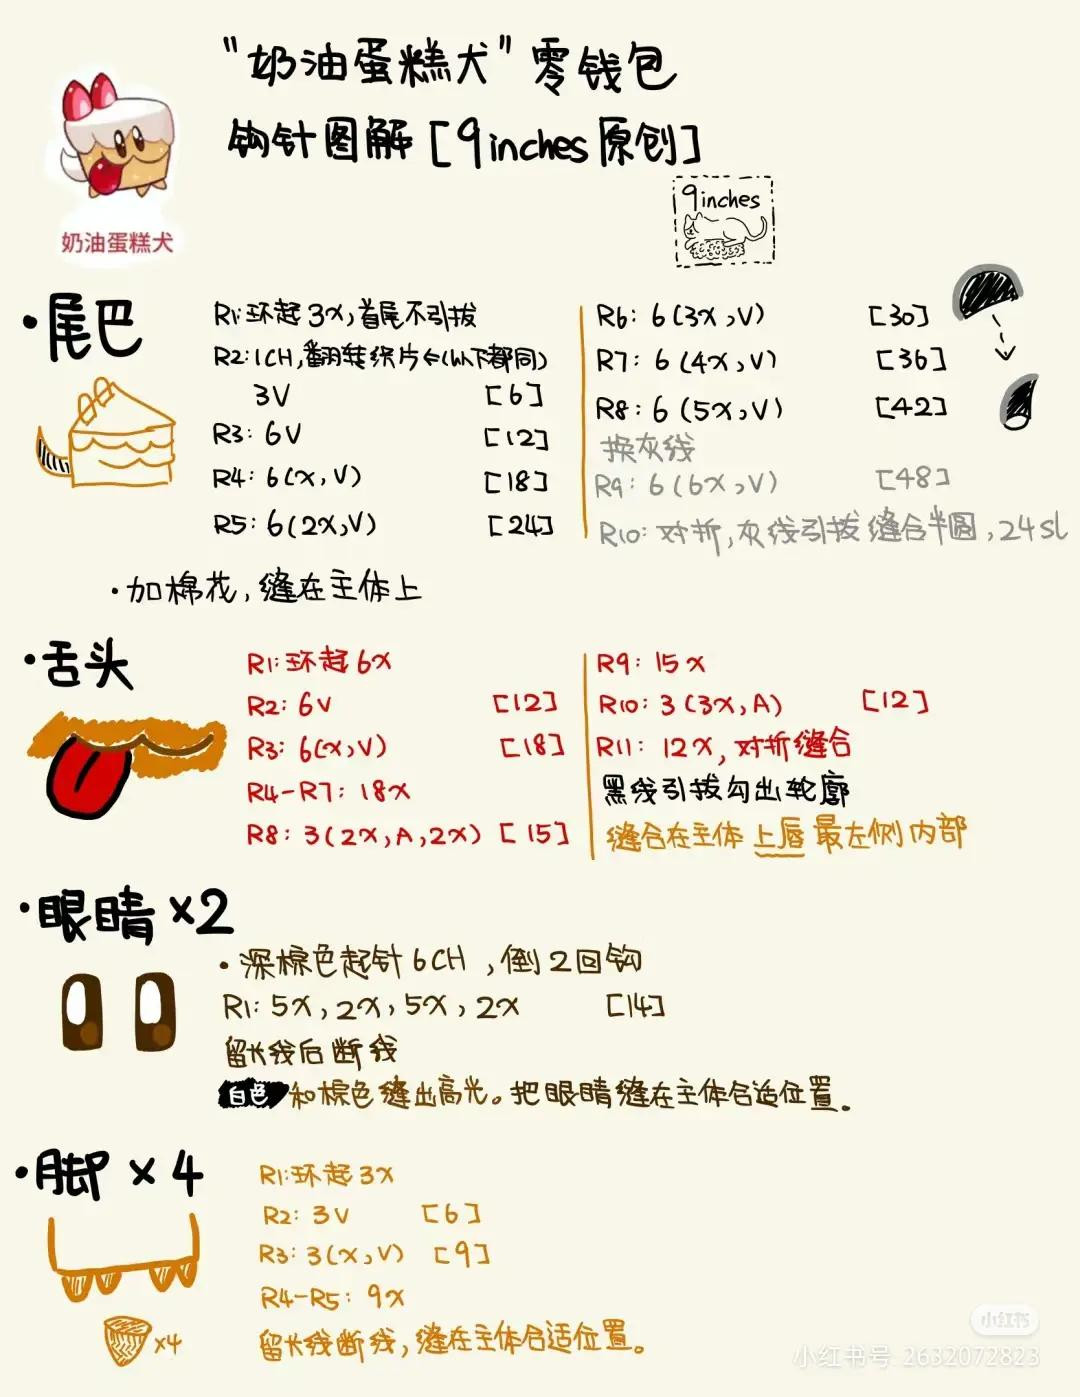 "奶油蛋糕犬"零钱包
钩针图解[9inches原创]
9inches
奶油蛋糕犬
·尾巴
R1:环起3x,首尾不引拔
R2:1CH,翻转织片←(以下都同)
3V [6]
R3: 6V [12]
R4: 6(x,V) [18]
R5: 6(2x,V) [24]
R6: 6(3x,V) [30]
R7: 6(4x,V) [36]
R8: 6(5x,V) [42]
换灰线
R9: 6(6x,V) [48]
R10: 对折,灰线引拔缝合半圆,24sl
·加棉花,缝在主体上
·舌头
R1:环起6x
R2: 6V [12]
R3: 6(x,V) [18]
R4-R7: 18x
R8: 3(2x,A,2x) [15]
R9: 15x
R10: 3(3x,A) [12]
R11: 12x,对折缝合
黑线引拔勾出轮廓
缝合在主体上唇最左侧内部
·眼睛x2
·深棕色起针6CH,倒2回钩
R1: 5x,2x,5x,2x [14]
留长线后断线
白色和棕色缝出高光。把眼睛缝在主体合适位置。
·脚x4
R1:环起3x
R2: 3V [6]
R3: 3(x,V) [9]
R4-R5: 9x
x4
留长线断线,缝在主体合适位置。
小红书
小红书号: 2632072823